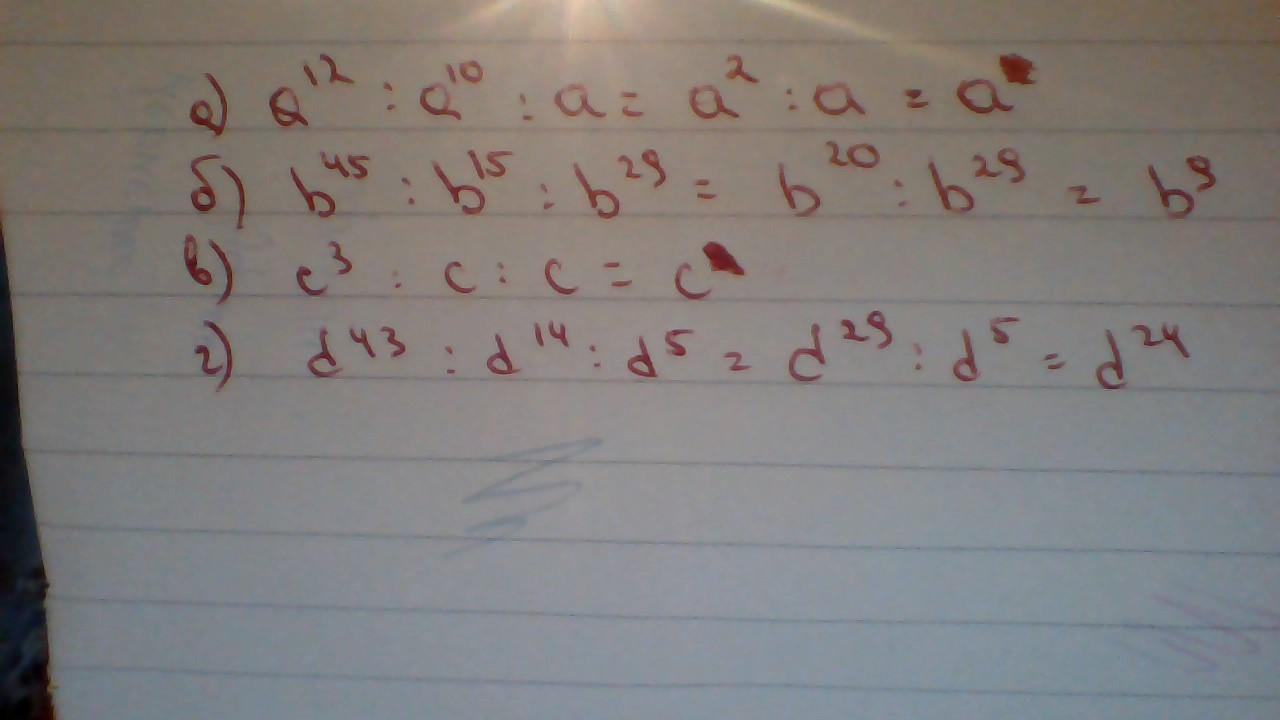 а) a¹² : a¹⁰ : a = a² : a = a
б) b⁴⁵ : b¹⁵ : b²⁹ = b²⁰ : b²⁹ = b⁹
в) c³ : c : c = c
г) d⁴³ : d¹⁴ : d⁵ = d²⁹ : d⁵ = d²⁴